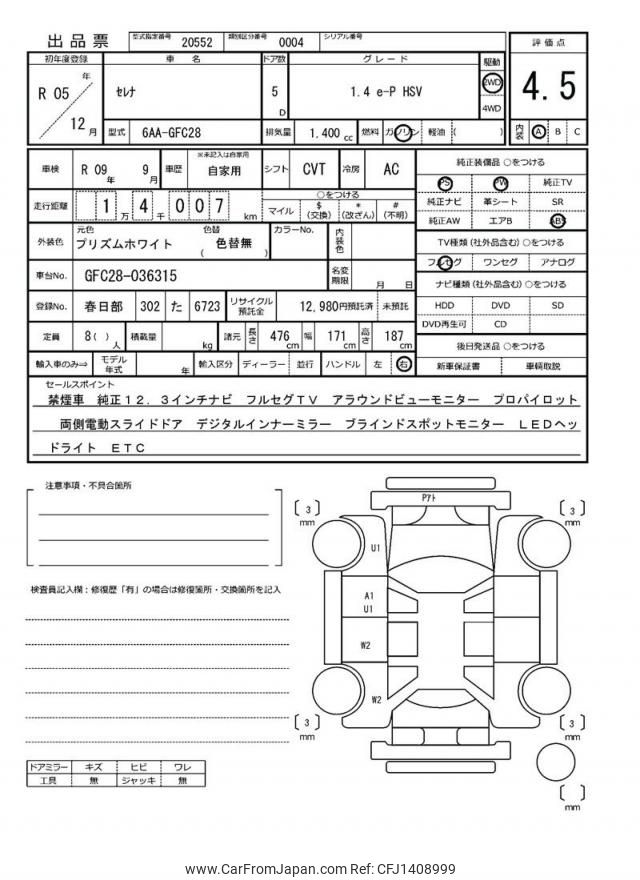 出品票 型式指定番号 20552 類別区分番号 0004 シリアル番号
初年度登録 車名 ドア数 グレード 駆動 評価点
R 05 年 12 月 セレナ 5 D 1.4 e-P HSV 2WD 4WD 4.5
型式 6AA-GFC28 排気量 1.400 cc 燃料 ガソリン 軽油 ( ) 内装 A B C
車検 R 09 年 9 月 車歴 ※未記入は自家用 自家用 シフト CVT 冷房 AC
純正装備品 ○をつける
PS PW 純正TV
純正ナビ 革シート SR
純正AW エアB ABS
走行距離 1 万 4 千 0 0 7 km
○をつける
マイル $ (交換) * (改ざん) # (不明)
外装色 元色 プリズムホワイト 色替 ( 色替無 ) カラーNo. 内装色
TV種類(社外品含む)○をつける
フルセグ ワンセグ アナログ
車台No. GFC28-036315 名変期限 月 日
ナビ種類(社外品含む)○をつける
HDD DVD SD
DVD再生可 CD
登録No. 春日部 302 た 6723 リサイクル預託金 12,980円預託済 未預託
定員 8( ) 人 積載量 kg 諸元 長さ 476 cm 幅 171 cm 高さ 187 cm
後日発送品 ○をつける
新車保証書 車輌取説
輸入車のみ⇒ モデル年式 年 輸入区分 ディーラー 並行 ハンドル 左 右
セールスポイント
禁煙車 純正12.3インチナビ フルセグTV アラウンドビューモニター プロパイロット
両側電動スライドドア デジタルインナーミラー ブラインドスポットモニター LEDヘッ
ドライト ETC
注意事項・不具合箇所
検査員記入欄:修復歴「有」の場合は修復箇所・交換箇所を記入
ドアミラー キズ ヒビ ワレ
工具 無 ジャッキ 無
Pアト
[ 3 ] mm
[ 3 ] mm
U1
A1
U1
W2
W2
[ 3 ] mm
[ 3 ] mm
[ ] mm
www.CarFromJapan.com Ref: CFJ1408999